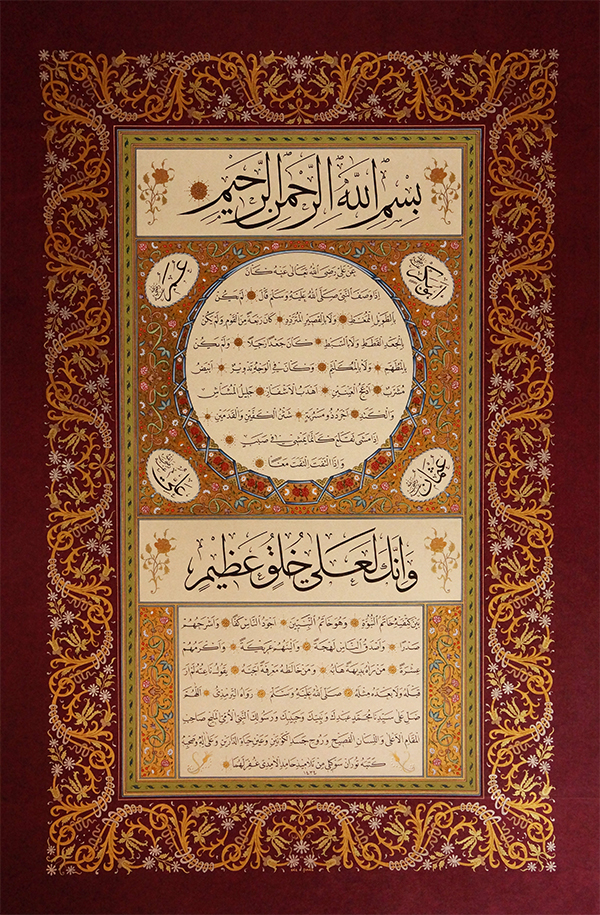 بسم الله الرحمن الرحيم
ابوبكر
عمر
عن علي رضي الله تعالى عنه كان
إذا وصف النبي صلى الله عليه وسلم قال لم يكن
بالطويل الممغط ولا بالقصير المتردد كان ربعة من القوم ولم يكن
بالجعد القطط ولا بالسبط كان جعدا رجلا ولم يكن
بالمطهم ولا بالمكلثم وكان في الوجه تدوير ابيض
مشرب ادعج العينين اهدب الاشفار جليل المشاش
والكتد اجرد ذو مسربة شثن الكفين والقدمين
إذا مشى تقلع كانما يمشي في صبب
وإذا التفت التفت معا
عثمان
علي
وإنك لعلى خلق عظيم
بين كتفيه خاتم النبوة وهو خاتم النبيين اجود الناس كفا واشرحهم
صدرا واصدق الناس لهجة والينهم عريكة واكرمهم
عشرة من رآه بديهة هابه ومن خالطه معرفة احبه يقول ناعته لم ار
قبله ولا بعده مثله صلى الله عليه وسلم رواه الترمذي اللهم
صل على سيدنا محمد عبدك ونبيك وحبيبك ورسولك النبي الأمي
المقام الأعلى واللسان الفصيح وروح جسد الكونين وعين حياة الدارين وعلى آله وصحبه
كتبه توران سوكلي من تلاميذ حامد الآمدي غفر لهما